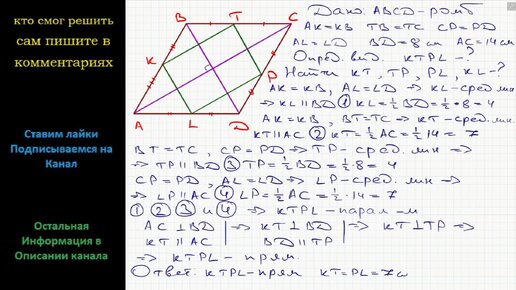 кто смог решить
сам пишите в
комментариях
Ставим лайки
Подписываемся на
Канал
Остальная
Информация в
Описании канала
B T C
K P
A L D
Дано ABCD-ромб
AK=KB TB=TC CP=PD
AL=LD BD=8 см AC=14 см
Опред. вид. KTPL-?
Найти KT, TP, PL, KL-?
AK=KB, AL=LD ⇒ KL-сред. лин
⇒ KL∥BD ① KL=½BD=½·8=4
AK=KB, BT=TC ⇒ KT-сред. лин.
KT∥AC ② KT=½AC=½·14=7
BT=TC, CP=PD ⇒ TP-сред. лин ⇒
⇒ TP∥BD ③ TP=½BD=½·8=4
CP=PD, AL=LD ⇒ LP-сред. лин ⇒
⇒ LP∥AC ④ LP=½AC=½·14=7
① ② ③ и ④ ⇒ KTPL-парал-м
AC⊥BD | ⇒ KT⊥BD | ⇒ KT⊥TP ⇒
KT∥AC | BD∥TP |
⇒ KTPL-прям.
Ответ. KTPL-прям KT=PL=7см